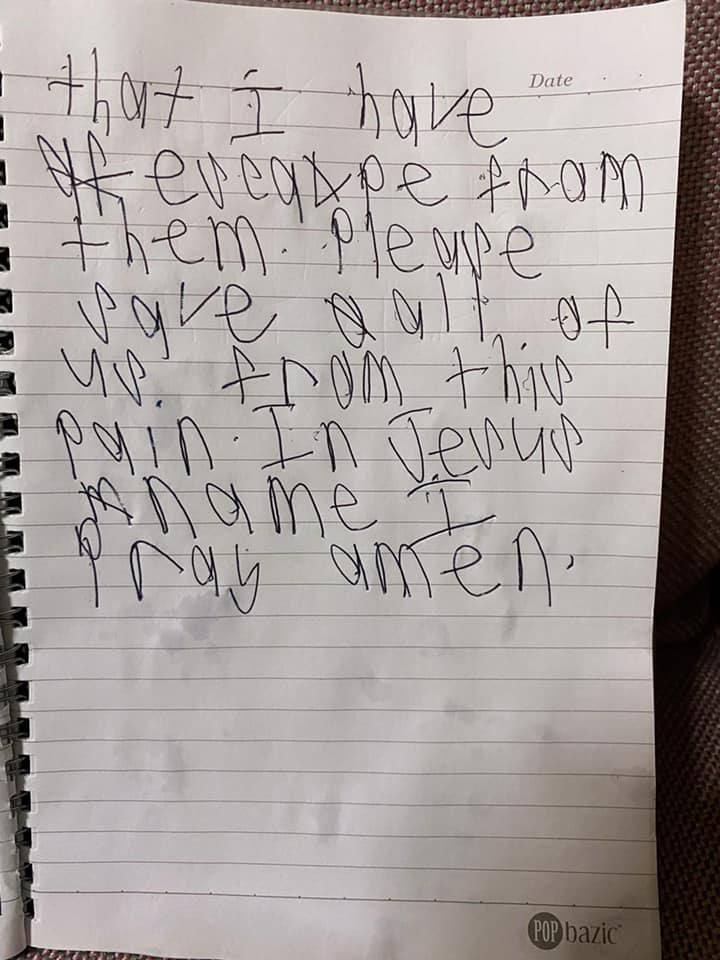 Date
that I have
escaxpe from
them. Please
save all of
us. from this
pain. In Jesus
name I
pray amen.
POP bazic